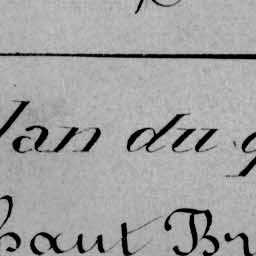 lan du
haut Br